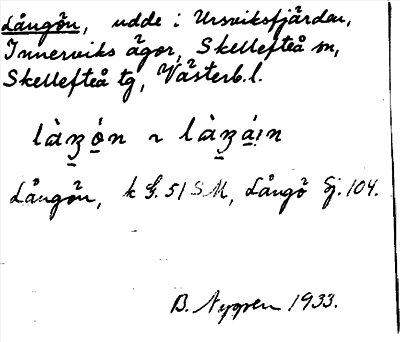 Långön, udde i Ursviksfjärden,
Innerviks ägor, Skellefteå sn,
Skellefteå tg, Västerb. l.
Långön, k G. 51 SM, Långö Sj. 104.
B. Nygren 1933.